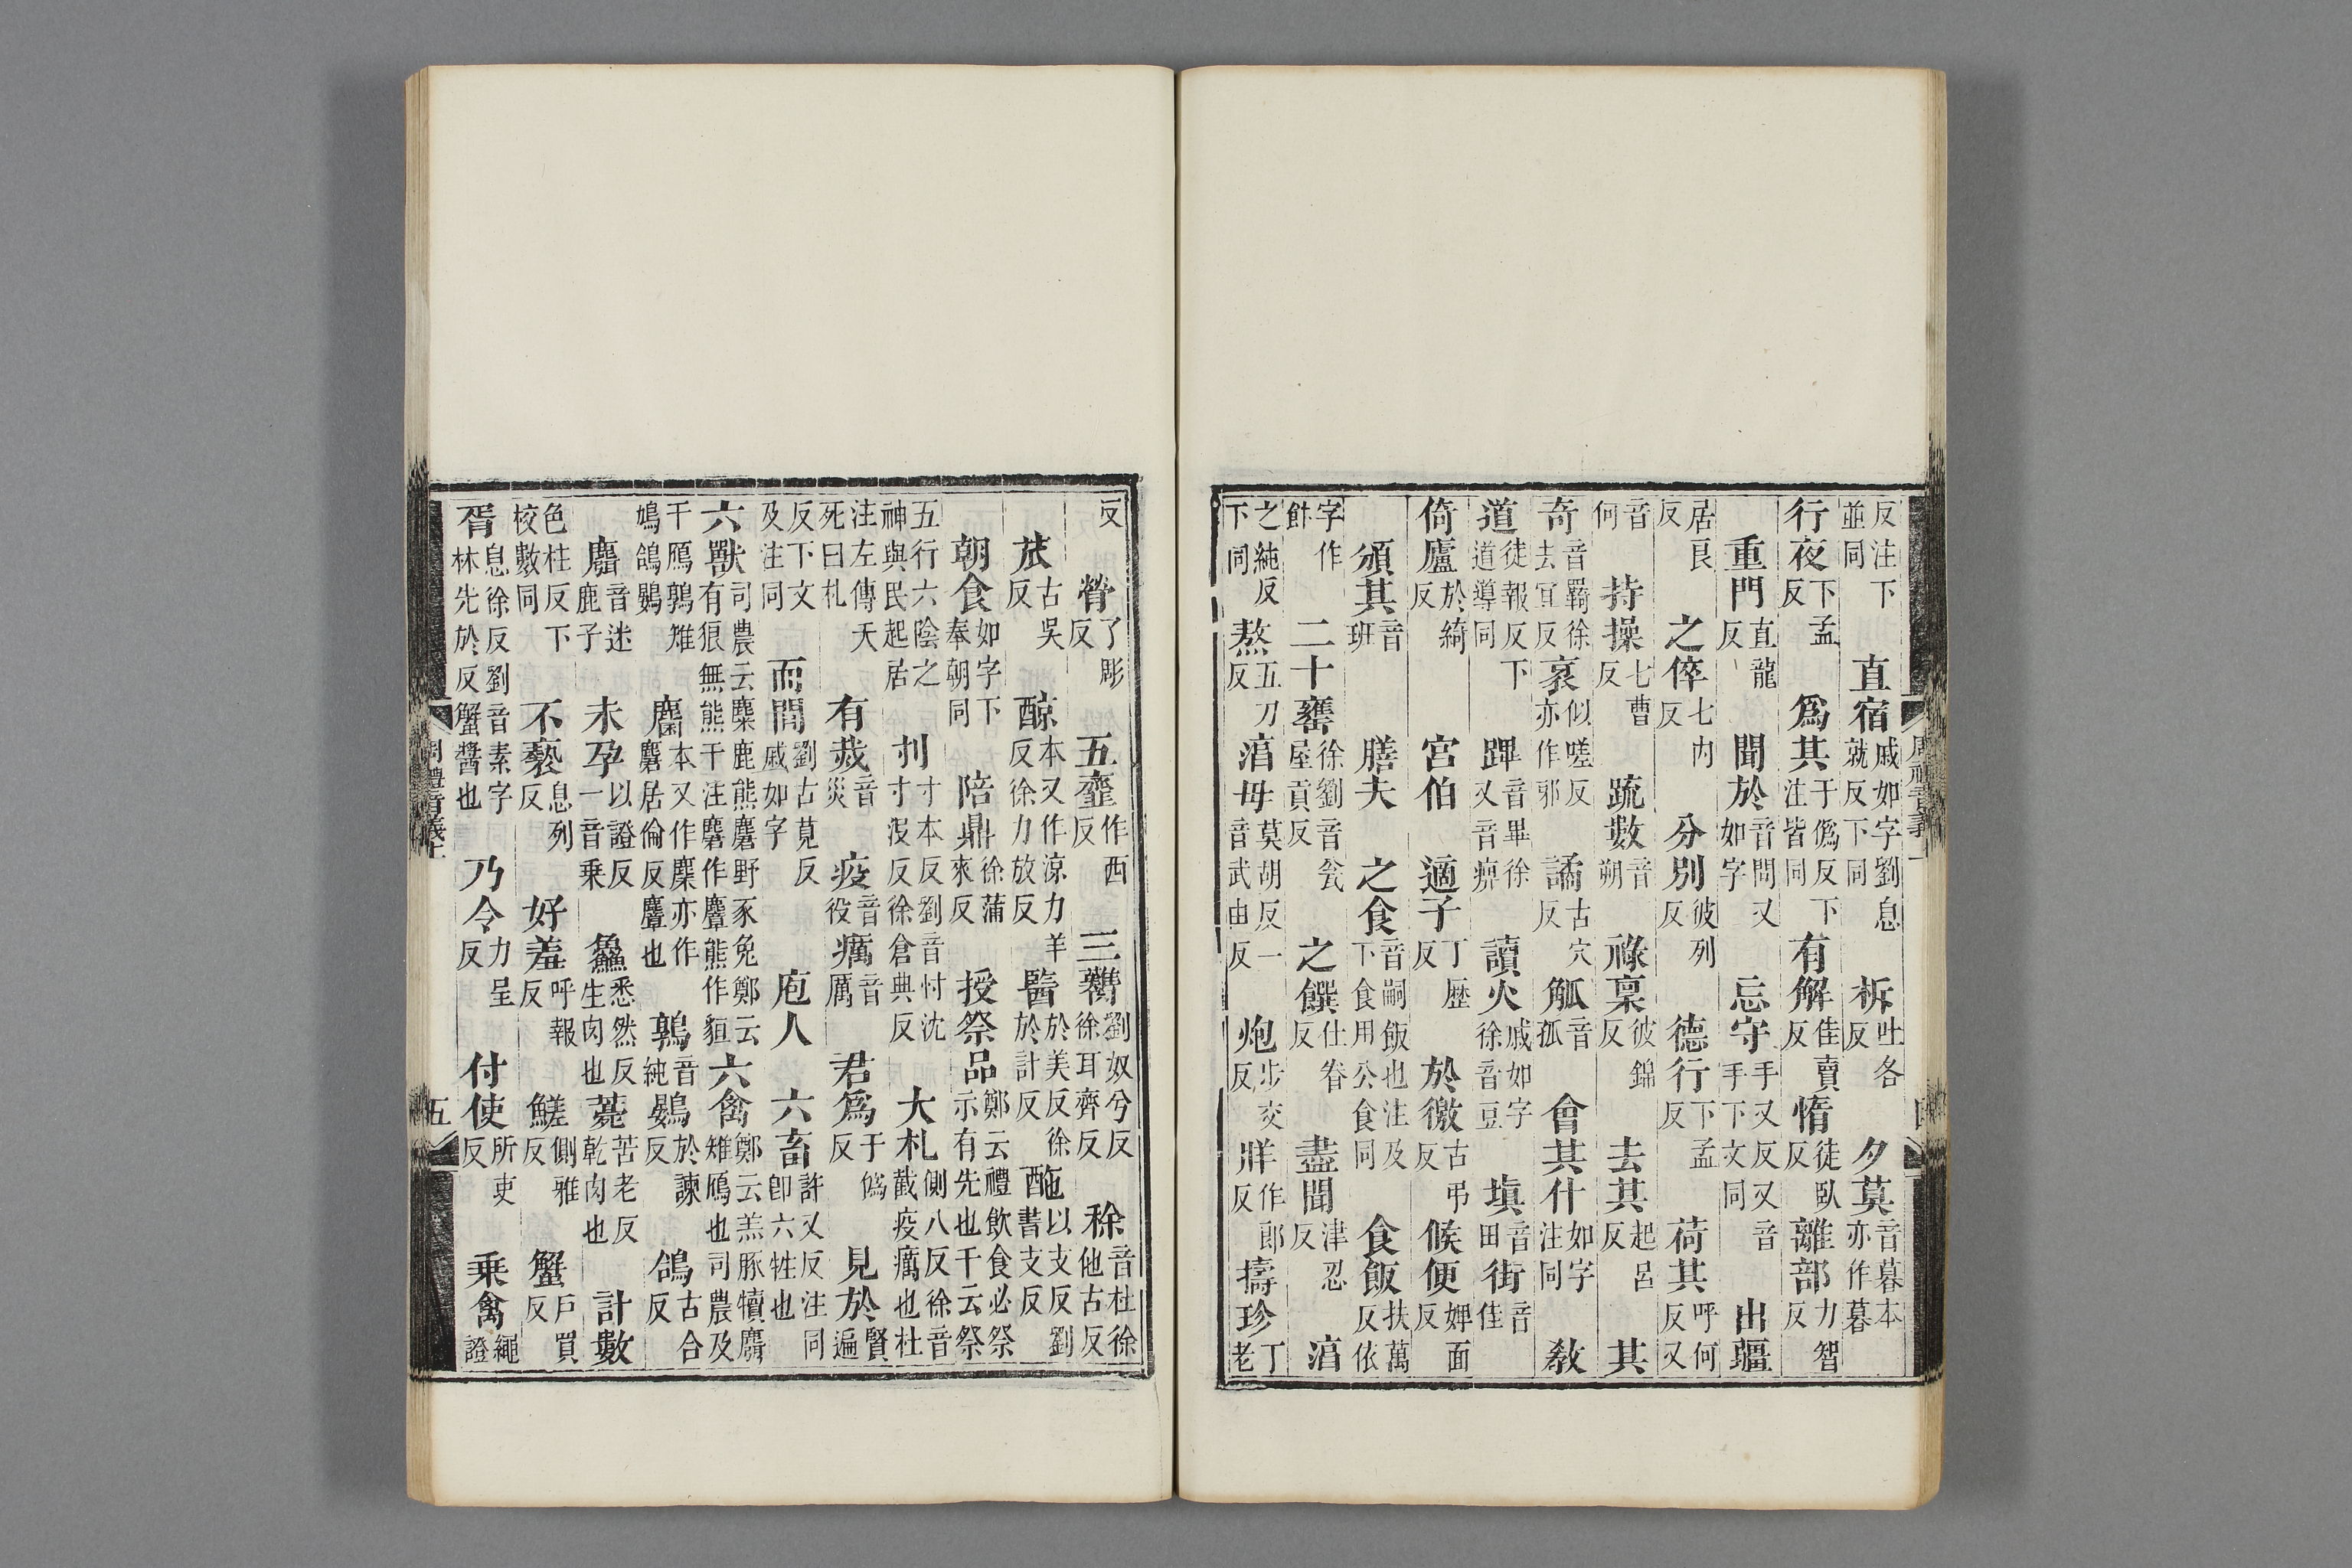 反注下並同　直宿戚如字劉息就反下同　柝吐各反　夕莫音暮本亦作暮
行夜下孟反　爲其于僞反下注皆同　有解佳賣反　惰徒臥反　離部力智反
重門直龍反　聞於音問又如字　忘守手又反又音手下文同　出疆
居良反　之倅七內反　分別彼列反　德行下孟反　荷其呼何反又
音何　持操七曹反　疏數音朔　祿稟彼錦反　去其起呂反　其
奇音羇徐去宜反　衺似嗟反亦作邪　譎古穴反　觚音孤　會其什如字注同　教
道徒報反下道導同　蹕音畢徐又音痹　讀火戚如字徐音豆　塡音田　街音佳
倚廬於綺反　宮伯　適子丁歷反　於徼古弔反　候便婢面反
頒其音班　膳夫　之食音嗣飯也注及下食用公食同　食飯扶萬反依
字作飰　二十罋徐劉音瓮屋貢反　之饌仕眷反　盡聞津忍反　淯
之純反下同　熬五刀反　淯毋莫胡反一音武由反　炮步交反　牂作郎反　擣珍丁老
反　膋了彫反　五齏作西反　三臡劉奴兮反徐耳齊反　稌音杜徐他古反
苽古吳反　醇本又作涼力羊反徐力放反　醫於美反徐於計反　酏以支反劉書支反
朝食如字下奉朝同　陪鼎徐蒲來反　授祭品鄭云禮飲食必祭示有先也干云祭
五行六陰之神與民起居　刌寸本反劉音忖沈寸沒反徐倉典反　大札側八反徐音截疫癘也杜
注左傳夭死曰札　有烖音災　疫音役　癘音厲　君爲于僞反　見於賢遍
反下文及注同　而閒劉古莧反戚如字　庖人　六畜許又反注同卽六牲也
六獸司農云麋鹿熊麕野豕兔鄭云有狼無熊干注麕作麞熊作貆　六禽鄭云羔豚犢麛雉鴈也司農及
干鴈鶉雉鳩鴿鷃　麕本又作麇亦作麏居倫反麞也　鶉音純　鷃於諫反　鴿古合反
麛音迷鹿子　未孕以證反一音乗　鱻悉然反生肉也　薨苦老反乾肉也　計數
色柱反下校數同　不褻息列反　好羞呼報反　鱃側雅反　蟹戶買反
胥息徐反劉音素字林先於反蟹醬也　乃令力呈反　付使所吏反　乗禽繩證
周禮音義上
五